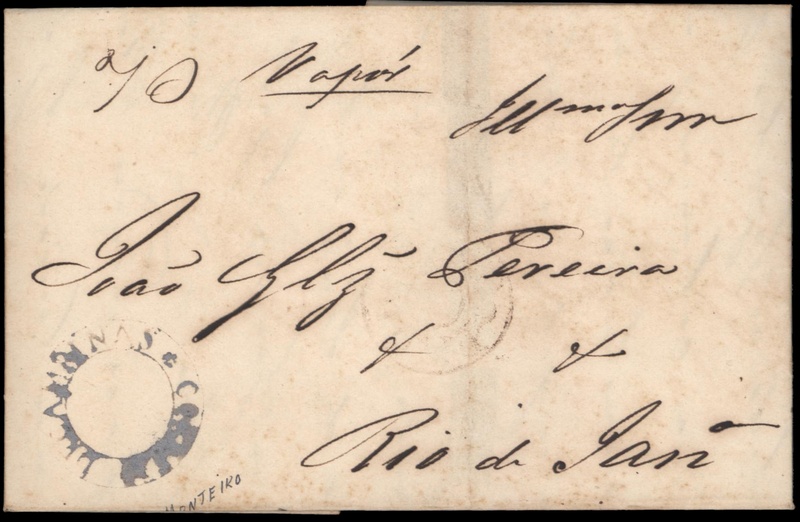 P Vapôr
Illmo Snr
João Glz Pereira
& &
Rio de Jano
ARINAS * CO
MONTEIRO